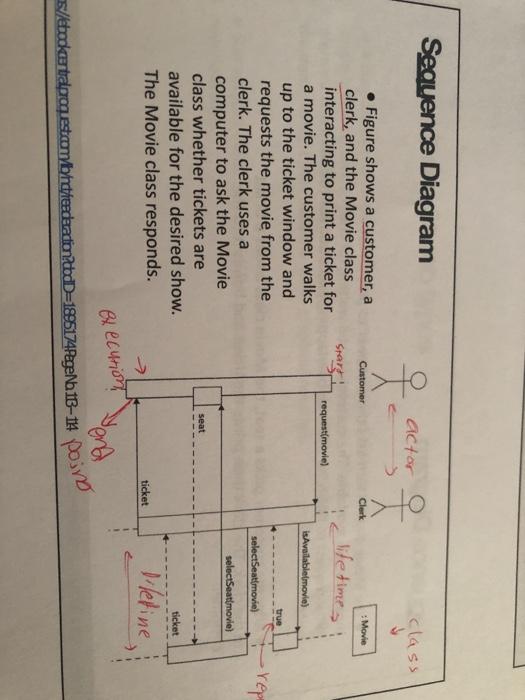 Sequence Diagram
• Figure shows a customer, a
clerk, and the Movie class
interacting to print a ticket for
a movie. The customer walks
up to the ticket window and
requests the movie from the
clerk. The clerk uses a
computer to ask the Movie
class whether tickets are
available for the desired show.
The Movie class responds.
actor
class
Customer
Clerk
: Movie
start
lifetime
request(movie)
isAvailable(movie)
true
selectSeat(movie)
selectSeat(movie)
seat
ticket
ticket
execution
end
point
lifetime
docID=1895174PageNb.113-114